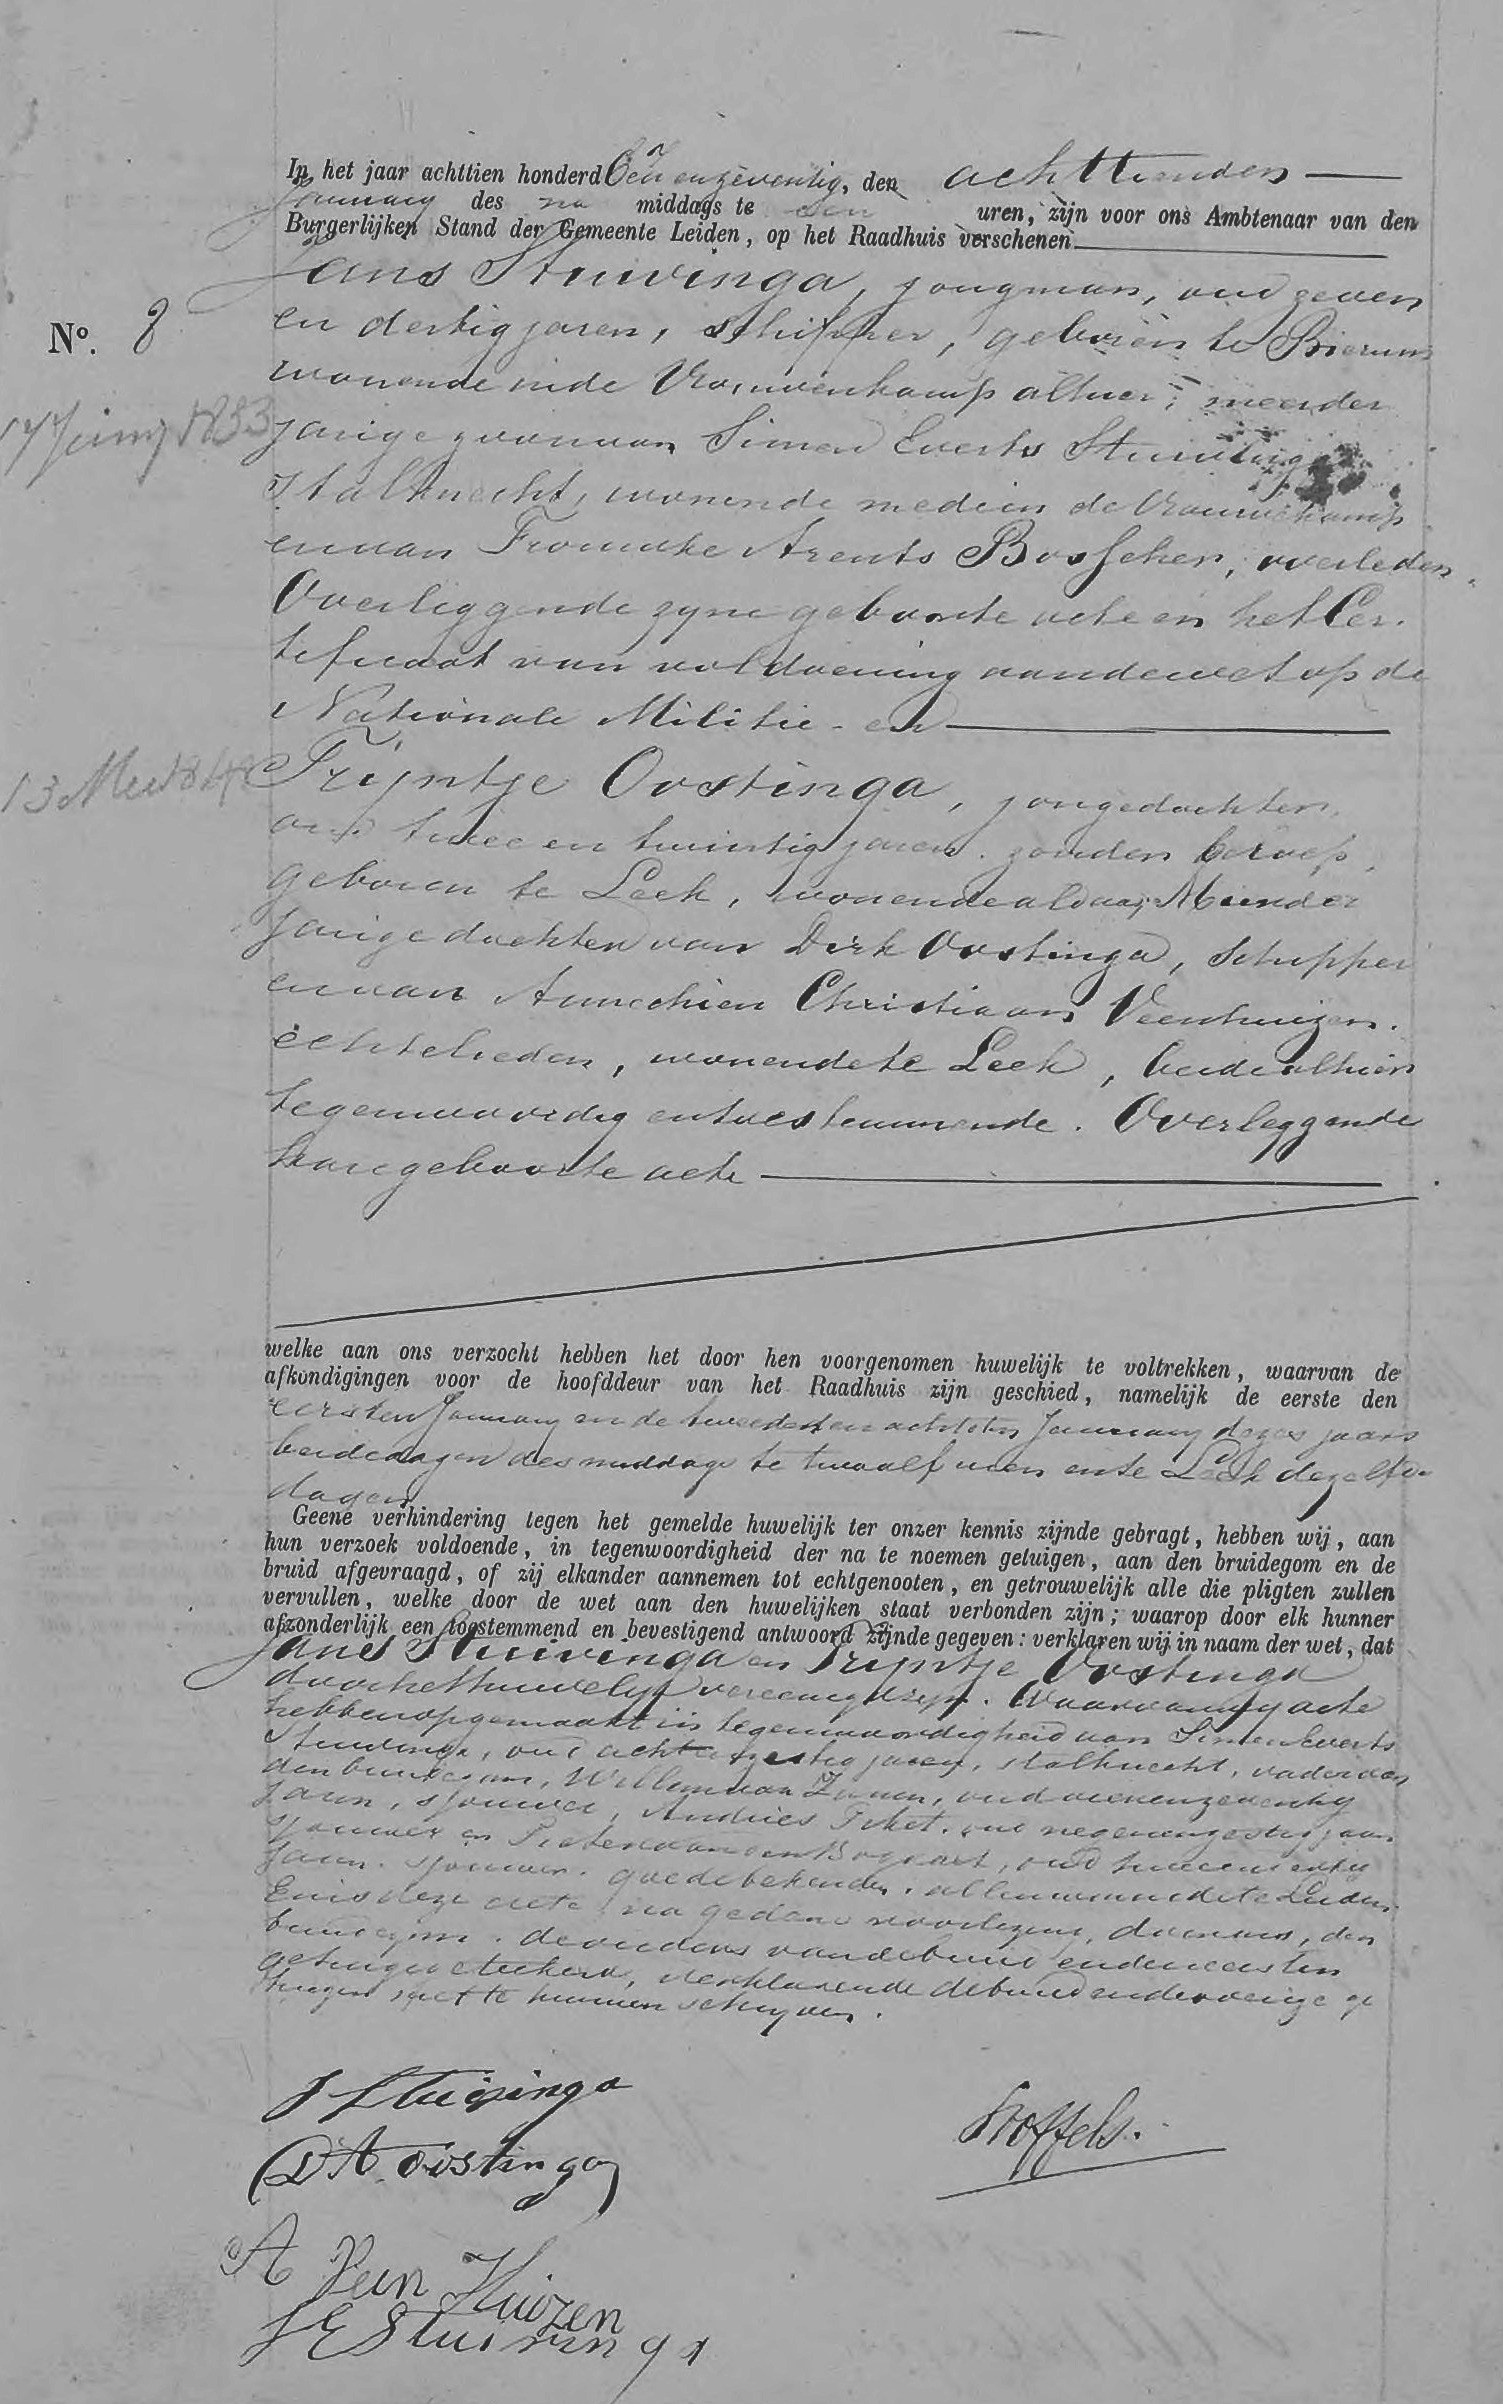 In het jaar achttien honderd Een en zeventig, den achttienden
January des na middags te een uren, zijn voor ons Ambtenaar van den
Burgerlijken Stand der Gemeente Leiden, op het Raadhuis verschenen
Jans Stuivinga, jongman, oud zeven
en dertig jaren, schipper, geboren te Bierum
wonende in de Vrouwenkamp alhier; meerder
N°. 8
17 Juny 1833
jarige zoon van Simen Everts Stuivinga
stalknecht, wonende mede in de Vrouwekamp
en van Frouwke Arents Bosscher, overleden.
Overleggende zyne geboorte acte en het Cer-
tificaat van voldoening aan de wet op de
Nationale Militie - en
13 Mei 1848
Trijntje Oostinga, jongedochter,
oud twee en twintig jaren, zonder beroep,
geboren te Leek, wonende aldaar; Minder
jarige dochter van Dirk Oostinga, schipper
en van Annechien Christiaans Veenhuizen.
echtelieden, wonende te Leek, beide alhier
tegenwoordig en toestemmende. Overleggende
hare geboorte acte
welke aan ons verzocht hebben het door hen voorgenomen huwelijk te voltrekken, waarvan de
afkondigingen voor de hoofddeur van het Raadhuis zijn geschied, namelijk de eerste den
eersten January en de tweede den achtsten January dezes jaars
beide dagen des middags te twaalf uren en te Leek dezelfde
dagen
Geene verhindering tegen het gemelde huwelijk ter onzer kennis zijnde gebragt, hebben wij, aan
hun verzoek voldoende, in tegenwoordigheid der na te noemen getuigen, aan den bruidegom en de
bruid afgevraagd, of zij elkander aannemen tot echtgenooten, en getrouwelijk alle die pligten zullen
vervullen, welke door de wet aan den huwelijken staat verbonden zijn; waarop door elk hunner
afzonderlijk een toestemmend en bevestigend antwoord zijnde gegeven: verklaren wij in naam der wet, dat
Jans Stuivinga en Trijntje Oostinga
door het huwelyk vereenigd zyn. Waarvan wy acte
hebben opgemaakt in tegenwoordigheid van Simen Everts
Stuivinga, oud acht en zestig jaren, stalknecht, vader van
den bruidegom, Willem van Zanen, oud een en zeventig
jaren, sjouwer, Andries oud negen en zestig jaren
sjouwer en Pieter van den Bogaart, oud twee en
jaren, sjouwer, goede bekenden, allen wonende te Leiden.
En is deze acte na gedane voorlezing, door ons, den
bruidegom, de ouders van de bruid en den eersten
getuige geteekend, verklarende de bruid en de overige ge
tuigen niet te kunnen schryven.
J Stuivinga
Stoffels.
D A oostinga
A Veen Huizen
S E Stuivinga